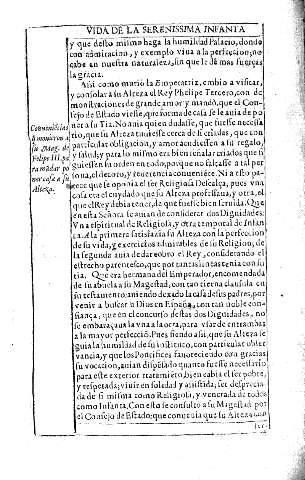 VIDA DE LA SERENISSIMA INFANTA
y que desto mismo haga la humildad Palacio, donde
con admiracion, y exemplo viua a la perfeccion, no
cabe en nuestra naturaleza, sin que le dè mas fuerças
la gracia.
Assi como murio la Emperatriz, embio a visitar,
y consolar a su Alteza el Rey Phelipe Tercero, con de
monstraciones de grande amor y mandò, que el Con-
sejo de Estado viesse, que forma de casa se le auia de po
ner a su Tia. No auia quien dudasse, que fuesse necessa
rio, que su Alteza tuuiesse cerca de si criadas, que con
particular obligacion, y amor acudiessen a su regalo,
y salud, y para lo mismo era bien señalar criados que si
guiessen su orden en todo, porque no faltasse a tal per
sona, el decoro, y reuerencia conueniente. Ni a esto pa-
rece que se oponia el ser Religiosa Descalça, pues vna
cosa era el cuydado que su Alteza professaua, y otra, el
que el Rey debia tener, de que fuesse bien seruida. Que
en esta Señora se auian de considerar dos Dignidades:
Vna espiritual de Religiosa, y otra temporal de Infan
ta. A la primera satisfazia su Alteza con la perfeccion
de su vida, y exercicios admirables de su Religion, de
la segunda auia de dar cobro el Rey, considerando el
estrecho parentesco, que por tantas lineas tenia con su
Tia. Que era hermana del Emperador, encomendada
de su abuela a su Magestad, con tan tierna clausula en
su testamento, auiendo dexado la casa de sus padres, por
venir a buscar a Dios en España, con tan noble con-
fiança, que en el concurso destas dos Dignidades, no
se embaraçaua la vna a la otra, para vsar de entrambas
a la mayor perfeccion. Pues siendo assi, que su Alteza se
guia la humildad de su instituto, con particular obser
vancia, y que los Pontifices fauoreciendo con gracias
su vocacion, auian dispensado quanto fuesse necessario
para este exterior tratamiento, bien cabia el ser pobre,
y respetada; viuir en soledad y assistida; ser desprecia-
da de si misma como Religiosa, y venerada de todos
como Infanta. Con esto se consultò a su Magestad por
el Consejo de Estado: que conuenia que su Alteza con
Felipe III. pa
ra
Alteza.